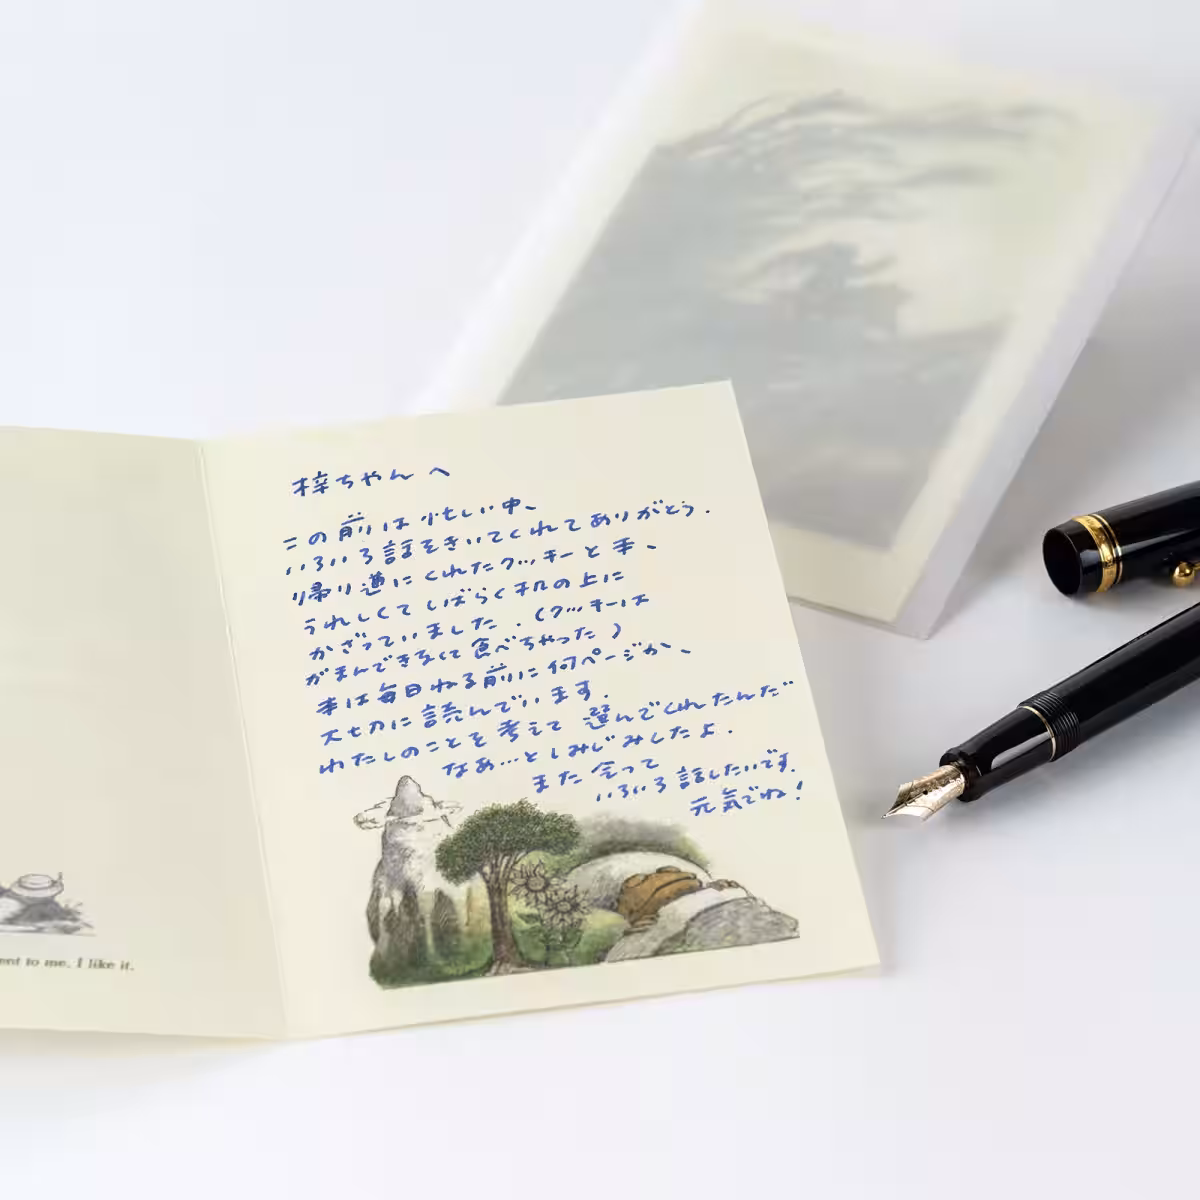 梓ちゃんへ
この前は忙しい中、
いろいろ話をきいてくれてありがとう.
帰り道にくれたクッキーと本、
うれしくてしばらく机の上に
かざっていました.(クッキーは
がまんできなくて食べちゃった)
本は毎日ねる前に何ページか、
大切に読んでいます.
わたしのことを考えて選んでくれたんだ
なぁ…としみじみしたよ.
また会って
いろいろ話したいです.
元気でね!
ent to me. I like it.